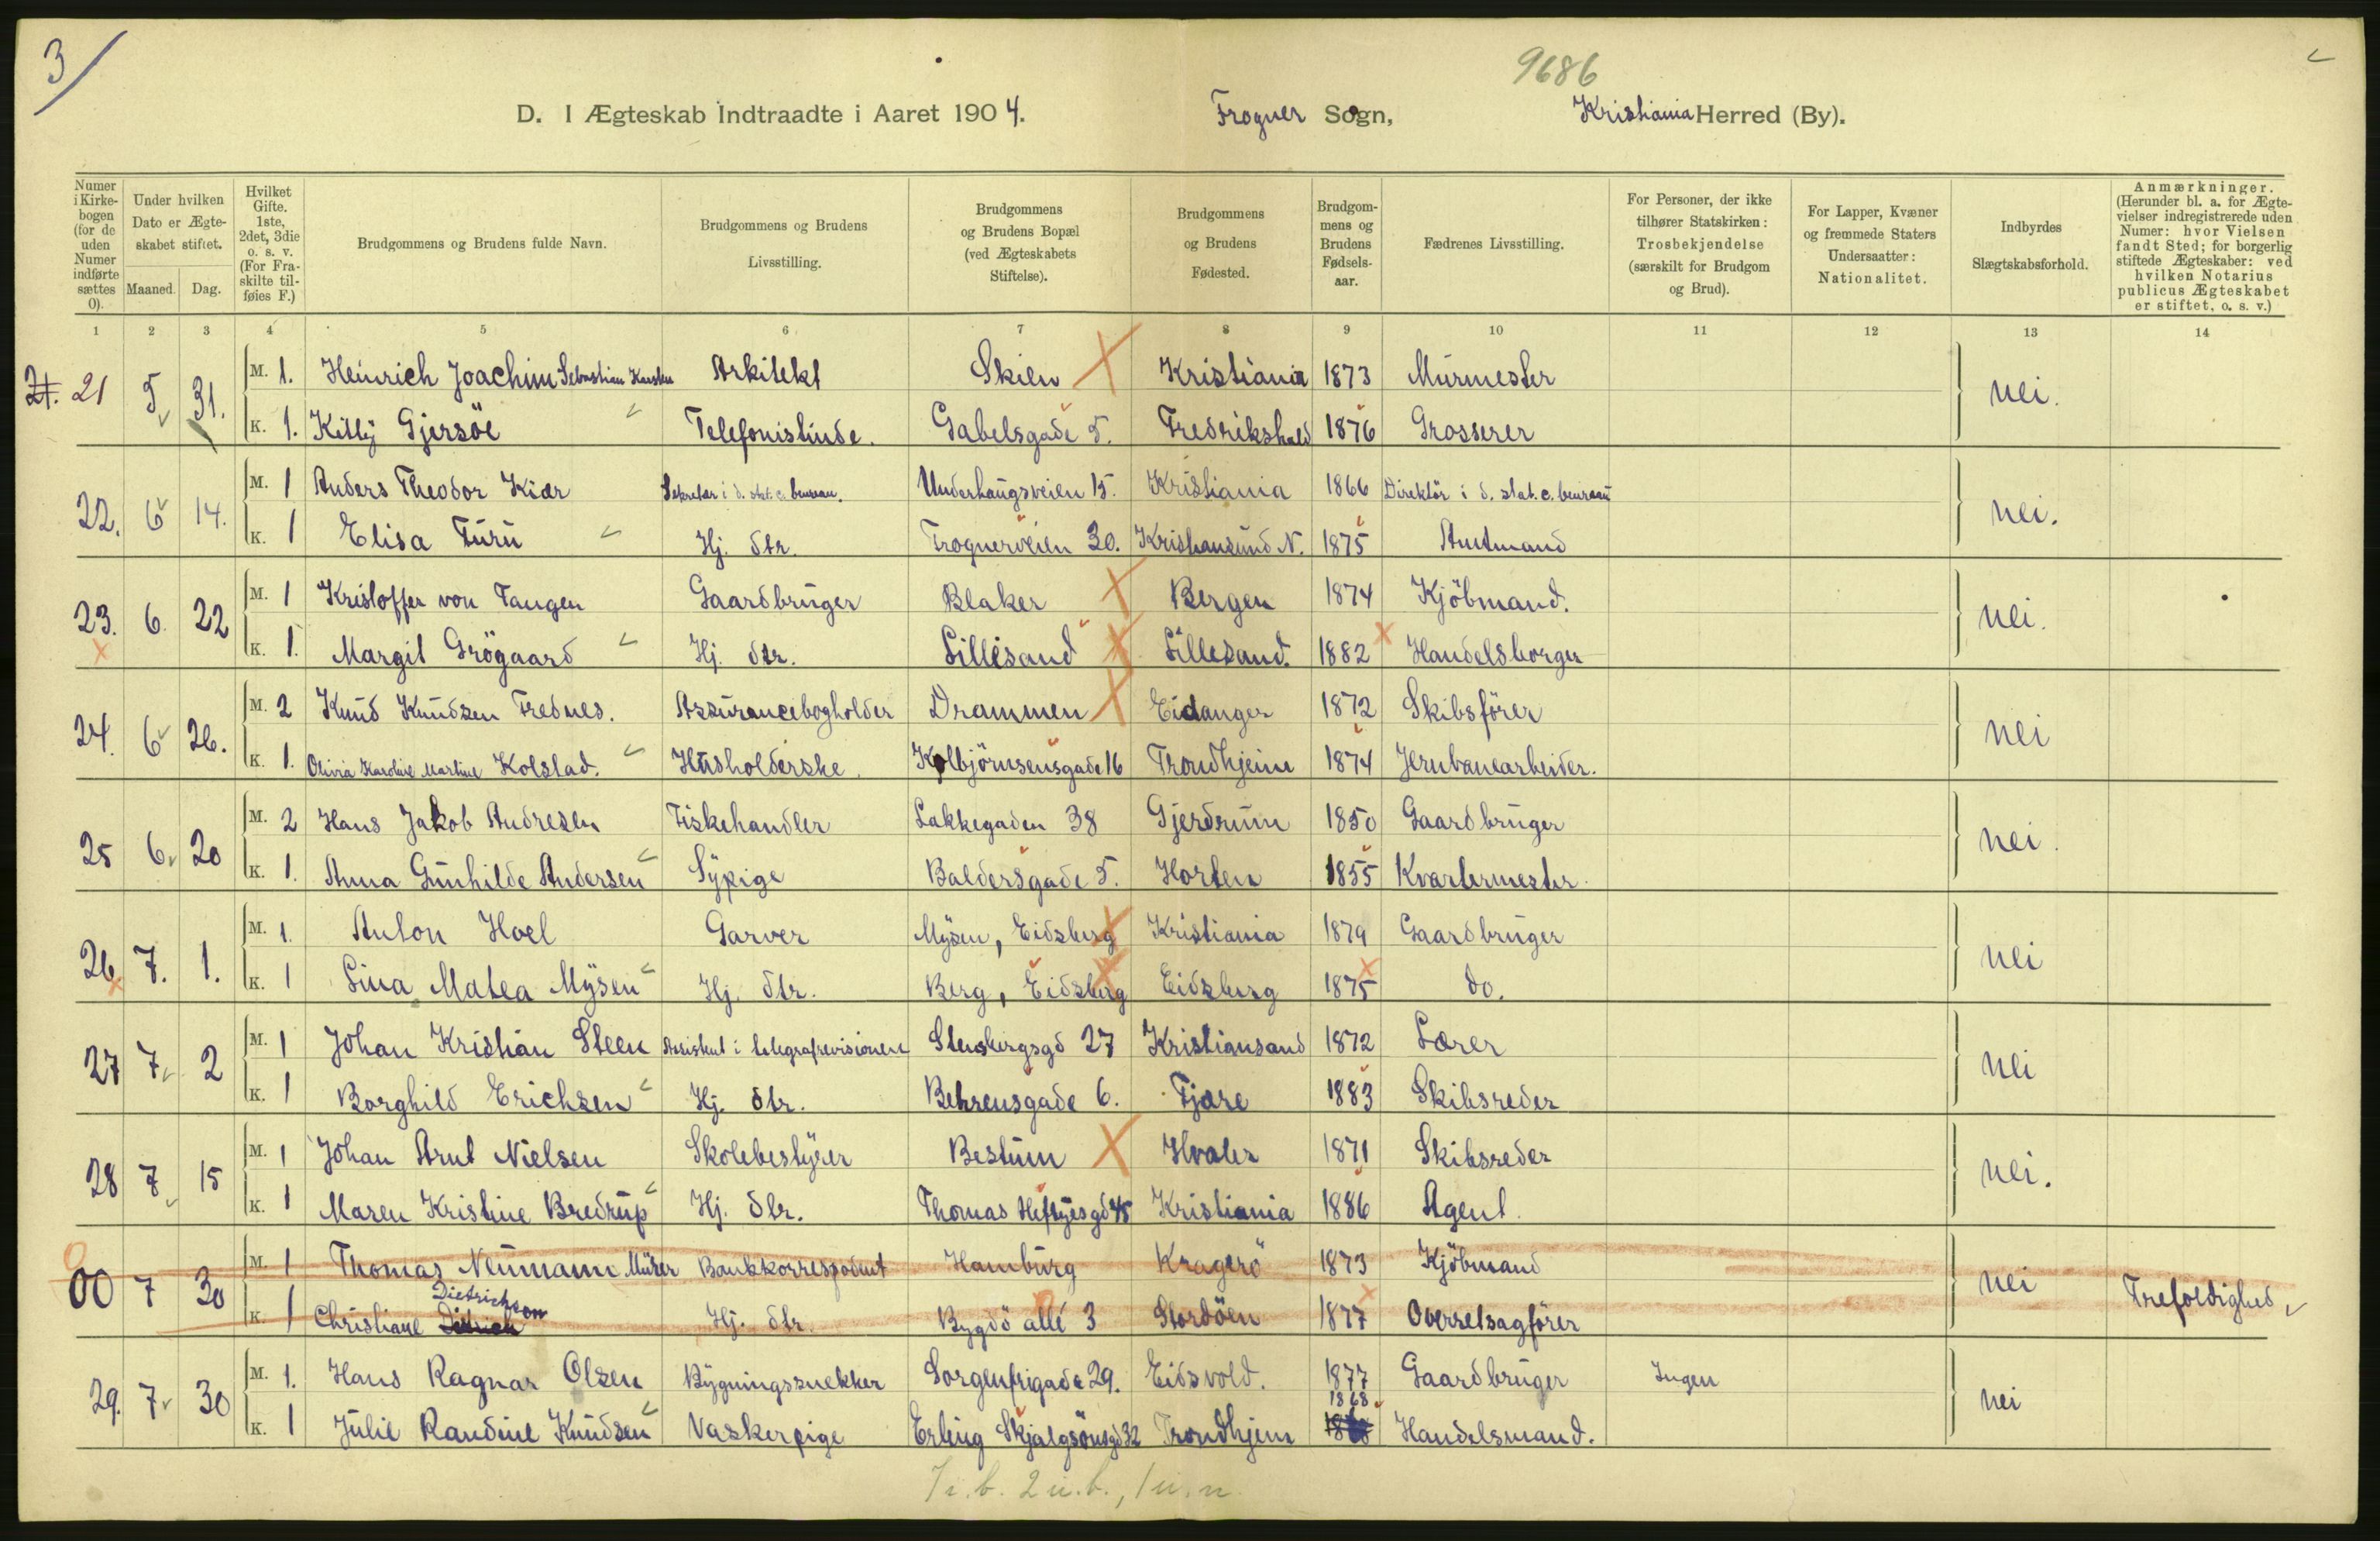 3/
9686
D. I Ægteskab Indtraadte i Aaret 1904. Frogner Sogn, Kristiania Herred (By).
Numer i Kirkebogen (for de uden Numer indførte sættes 0).
Under hvilken Dato er Ægteskabet stiftet.
Maaned. Dag.
Hvilket Gifte. 1ste, 2det, 3die o. s. v. (For Fraskilte tilføies F.)
Brudgommens og Brudens fulde Navn.
Brudgommens og Brudens Livsstilling.
Brudgommens og Brudens Bopæl (ved Ægteskabets Stiftelse).
Brudgommens og Brudens Fødested.
Brudgommens og Brudens Fødselsaar.
Fædrenes Livsstilling.
For Personer, der ikke tilhører Statskirken: Trosbekjendelse (særskilt for Brudgom og Brud).
For Lapper, Kvæner og fremmede Staters Undersaatter: Nationalitet.
Indbyrdes Slægtskabsforhold.
Anmærkninger. (Herunder bl. a. for Ægtevielser indregistrerede uden Numer: hvor Vielsen fandt Sted; for borgerlig stiftede Ægteskaber: ved hvilken Notarius publicus Ægteskabet er stiftet, o. s. v.)
1 2 3 4 5 6 7 8 9 10 11 12 13 14
21 5 31. M. 1. Heinrich Joachim Sebastian Karsten Arkitekt Skien Kristiania 1873 Murmester nei.
K. 1. Killy Gjersöe Telefonistinde. Gabelsgade 5. Fredrikshald 1876 Grosserer
22. 6 14. M. 1 Anders Theodor Kiær Sekretær i d. stat. c. bureau. Underhaugsveien 15. Kristiania 1866 Direktör i d. stat. c. bureau nei.
K. 1 Elisa Furu Hj. dtr. Frognerveien 30. Kristiansund N. 1875 Amtmand
23. 6. 22 M. 1 Kristoffer von Tangen Gaardbruger Blaker Bergen 1874 Kjöbmand. nei.
K. 1. Margit Grögaard Hj. dtr. Lillesand Lillesand. 1882 Handelsborger
24. 6 26. M. 2 Knud Knudsen Frednes. Assurancebogholder Drammen Eidanger 1872 Skibsförer nei
K. 1. Olivia Karoline Martine Kolstad. Husholderske. Kolbjörnsensgade 16 Trondhjem 1874 Jernbanearbeider.
25 6. 20 M. 2 Hans Jakob Andresen Fiskehandler Lakkegaden 38 Gjerdrum 1850 Gaardbruger nei.
K. 1. Anna Gunhilde Andersen Sypige Baldersgade 5. Horten 1855 Kvartermester.
26 7. 1. M. 1. Anton Hoel Garver Mysen, Eidsberg Kristiania 1879 Gaardbruger nei
K. 1 Lina Matea Mysen Hj. dtr. Berg, Eidsberg Eidsberg 1875 do.
27 7 2 M. 1 Johan Kristian Steen Assistent i telegrafrevisionen Stensbergsgd 27 Kristiansand 1872 Lærer nei
K. 1 Borghild Erichsen Hj. dtr. Behrensgade 6. Fjære 1883 Skibsreder
28 7 15 M. 1 Johan Arnt Nielsen Skolebestyrer Bestum Hvaler 1871 Skibsreder nei.
K. 1 Maren Kristine Bredrup Hj. dtr. Thomas Heftyesgd 45 Kristiania 1886 Agent.
00 7 30 M. 1 Thomas Neumann Mürer Bankkorrespodent Hamburg Kragerö 1873 Kjöbmand nei Trefoldighed
K. 1 Christiane Dietrichson Hj. dtr. Bygdö allé 3 Stordöen 1877 Overretsagförer
29. 7. 30 M. 1. Hans Ragnar Olsen Bygningssnekker Sorgenfrigade 29. Eidsvold. 1877 Gaardbruger Ingen nei
K. 1 Julie Randine Knudsen Vaskerpige Erling Skjalgsönsgd 32 Trondhjem 1868 Handelsmand.
1 i. b. 2 u. b., 1 u. n.